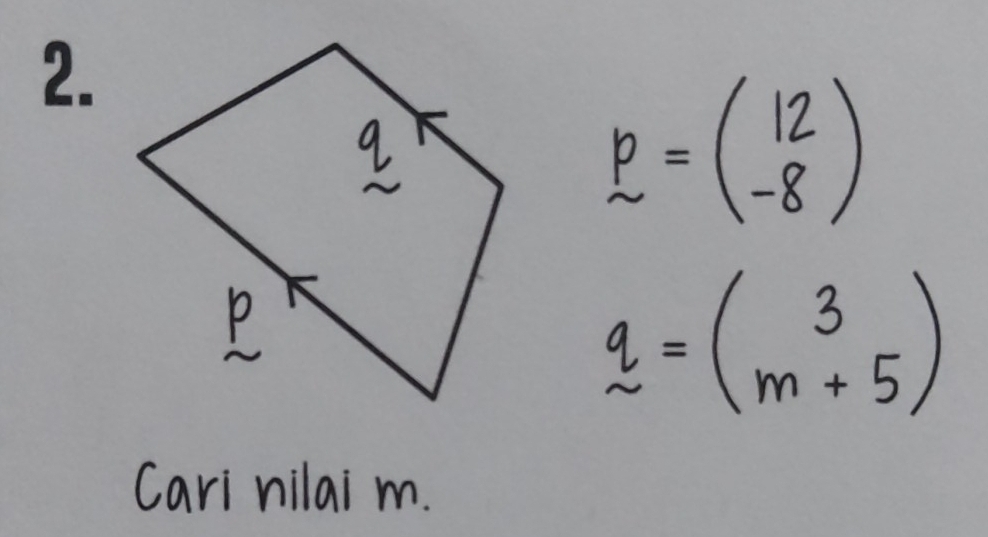 2.
q
p
p = (12
-8)
q = (3
m + 5)
Cari nilai m.